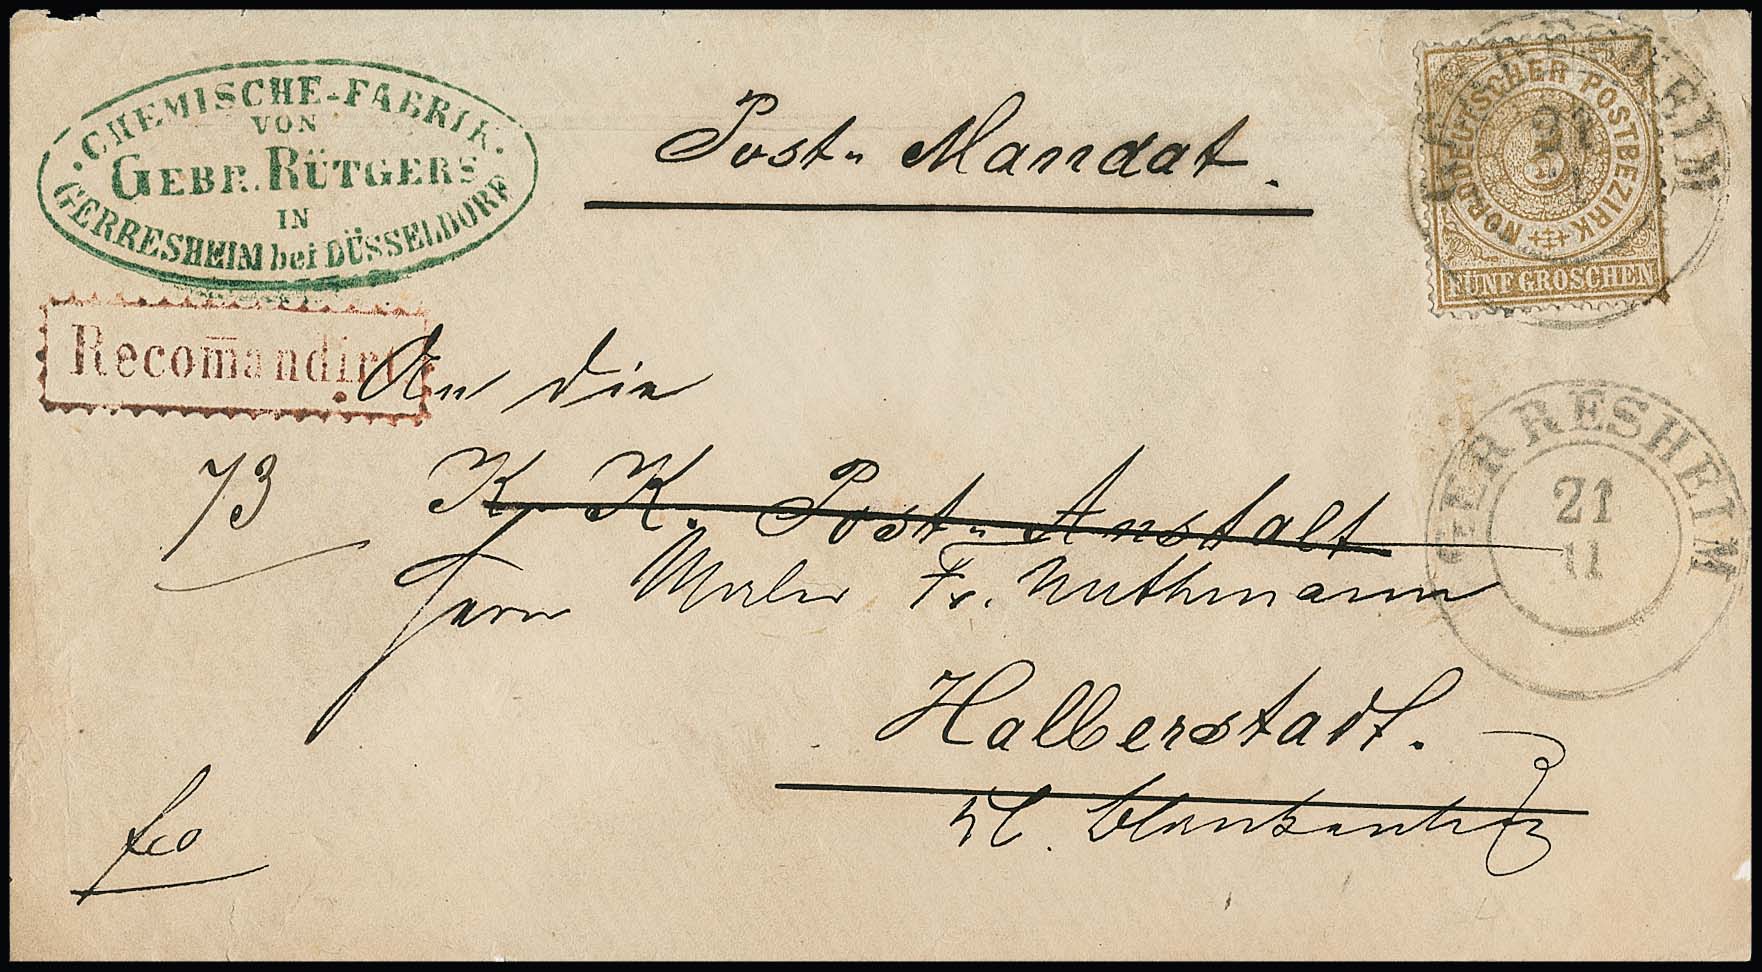 CHEMISCHE-FABRIK
VON
GEBR. RÜTGERS
IN
GERRESHEIM bei DÜSSELDORF
Post- Mandat.
GERRESHEIM
21
NORDDEUTSCHER POSTBEZIRK
5
FÜNF GROSCHEN
Recom̄andirt
An die
73
K. K. Post-Anstalt
GERRESHEIM
21
11
Herrn Maler Fr. Nuthmann
Halberstadt.
fco